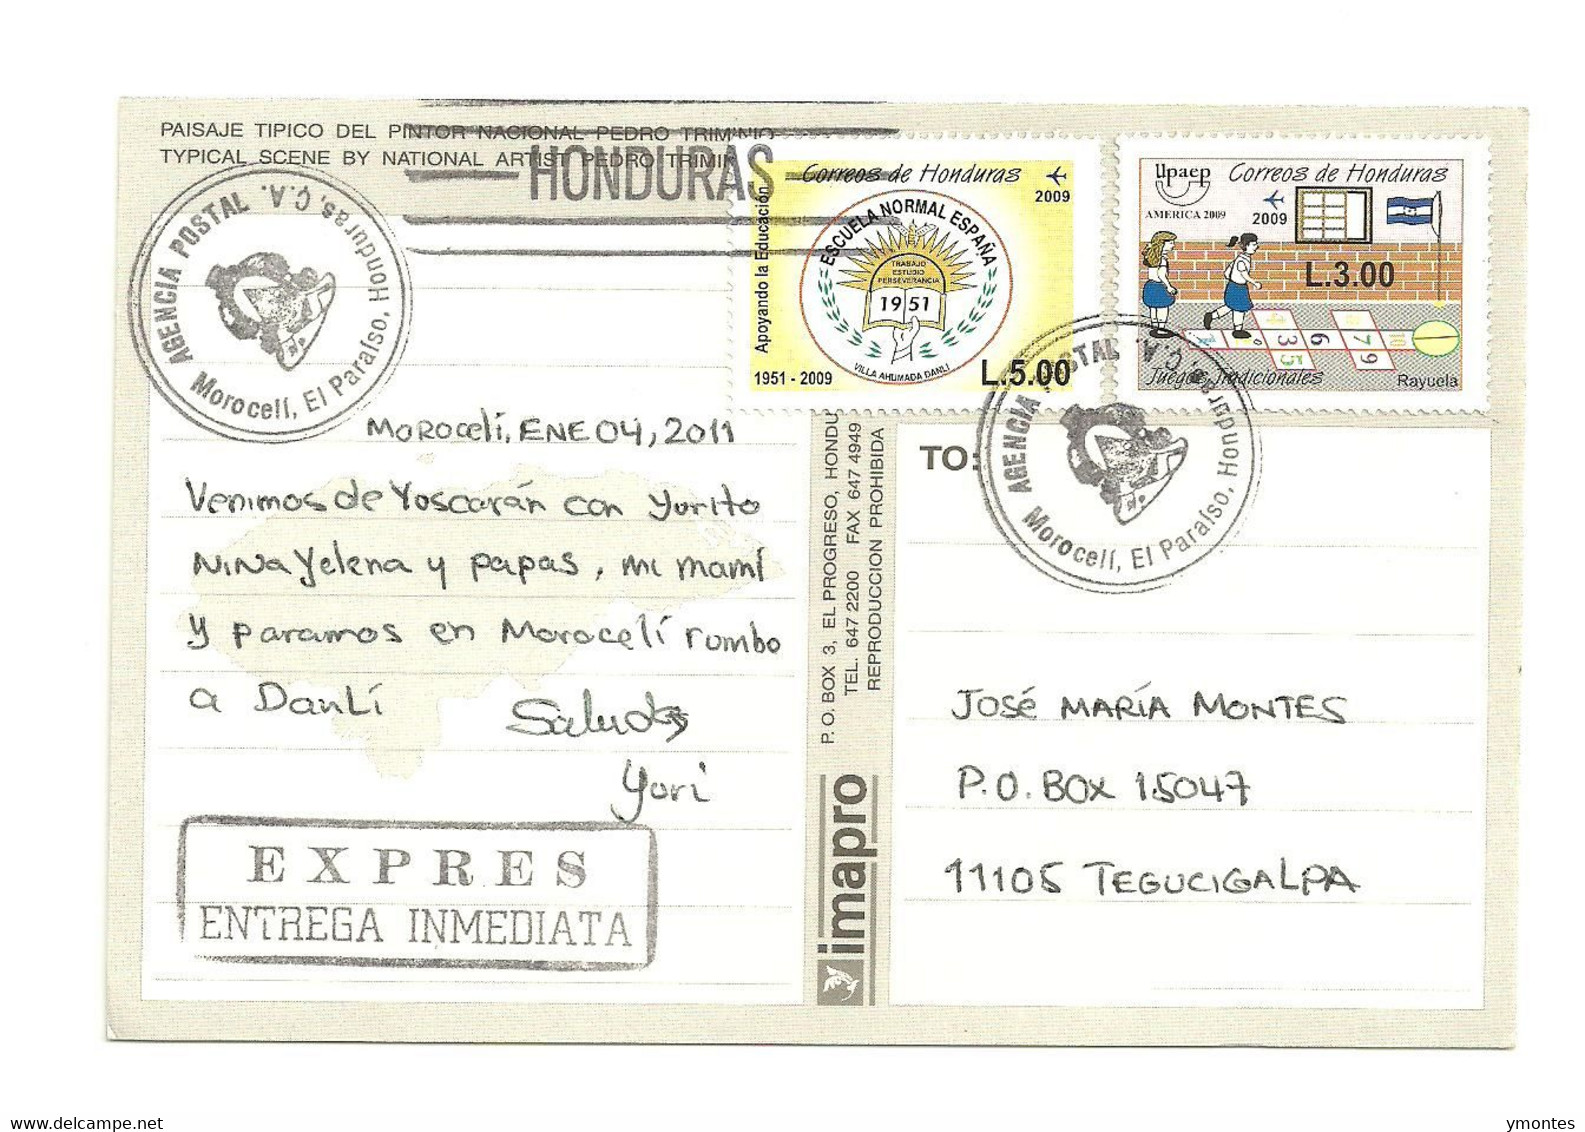 PAISAJE TIPICO DEL PINTOR NACIONAL PEDRO TRIMINIO
TYPICAL SCENE BY NATIONAL ARTIST PEDRO TRIMIN
HONDURAS
AGENCIA POSTAL
Morocelí, El Paraíso, Honduras, C.A.
Apoyando la Educación
Correos de Honduras
2009
ESCUELA NORMAL ESPAÑA
TRABAJO
ESTUDIO
PERSEVERANCIA
1951
VILLA AHUMADA DANLI
1951 - 2009
L.5.00
Upaep
AMERICA 2009
Correos de Honduras
2009
L.3.00
3 5 6 7 9 10
Juegos Tradicionales
Rayuela
AGENCIA POSTAL
Morocelí, El Paraíso, Honduras, C.A.
Morocelí, ENE 04, 2011
Venimos de Yoscarán con Yurito
NiNa Yelena y papas, mi mamí
y paramos en Morocelí rumbo
a Danlí
Saludos
Yuri
EXPRES
ENTREGA INMEDIATA
P.O. BOX 3, EL PROGRESO, HONDU
TEL. 647 2200 FAX 647 4949
REPRODUCCION PROHIBIDA
imapro
TO:
JOSÉ MARÍA MONTES
P.O. BOX 15047
11105 TEGUCIGALPA
www.delcampe.net
ymontes